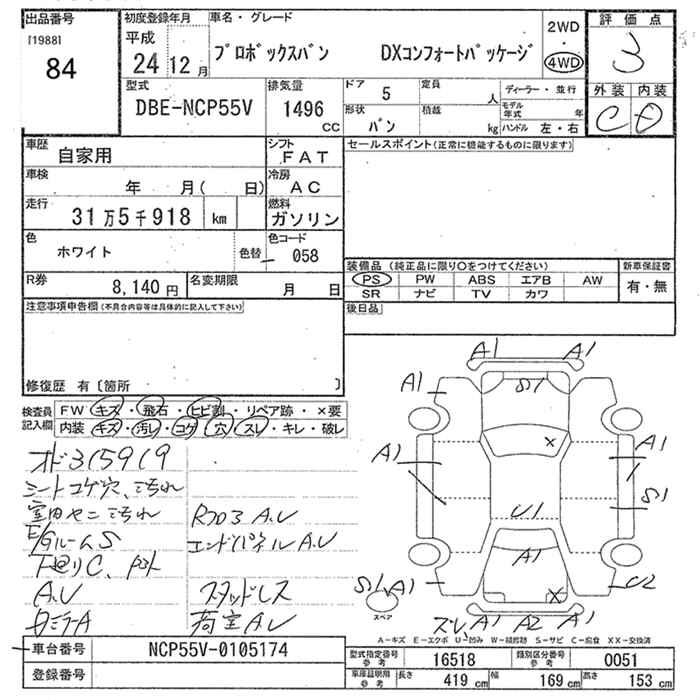 出品番号
[1988]
84
初度登録年月
平成
24 12 月
車名・グレード
プロボックスバン DXコンフォートパッケージ
2WD
・
4WD
評価点
3
外装 内装
C D
型式
DBE-NCP55V
排気量
1496
CC
ドア 5
形状
バン
定員
人
積載
kg
ディーラー・並行
モデル年式 年
ハンドル 左・右
車歴
自家用
シフト
FAT
車検
年 月( 日)
冷房
AC
走行
31 万 5 千 918 km
燃料
ガソリン
色
ホワイト
色替
色コード
058
R券
8,140 円
名変期限
月 日
セールスポイント(正常に機能するものに限ります)
装備品(純正品に限り○をつけてください)
新車保証書
PS PW ABS エアB AW
SR ナビ TV カワ
有・無
後日品
注意事項申告欄(不具合内容等は具体的に記入して下さい)
修復歴 有〔箇所 〕
検査員記入欄
FW キズ・飛石・ヒビ割・リペア跡・×要
内装 キズ・汚レ・コゲ・穴・スレ・キレ・破レ
オド315919
シートコゲ穴、汚れ
室内ヤニ汚れ
E/GルームS
下廻りC、
A.U
RフロアA.U
エンドパネルA.U
スタッドレス
荷室A.U
A1 A1
A1 S1
A1 × A1
S1
U1
A1
S1 A1 × U2
スペア
スレ A1 A2 A1
A-キズ E-エクボ U-凹ミ W-補修跡 S-サビ C-腐食 XX-交換済
車台番号
NCP55V-0105174
登録番号
型式指定番号
参考
16518
類別区分番号
参考
0051
車庫証明用
参考
長さ 419 cm 幅 169 cm 高さ 153 cm